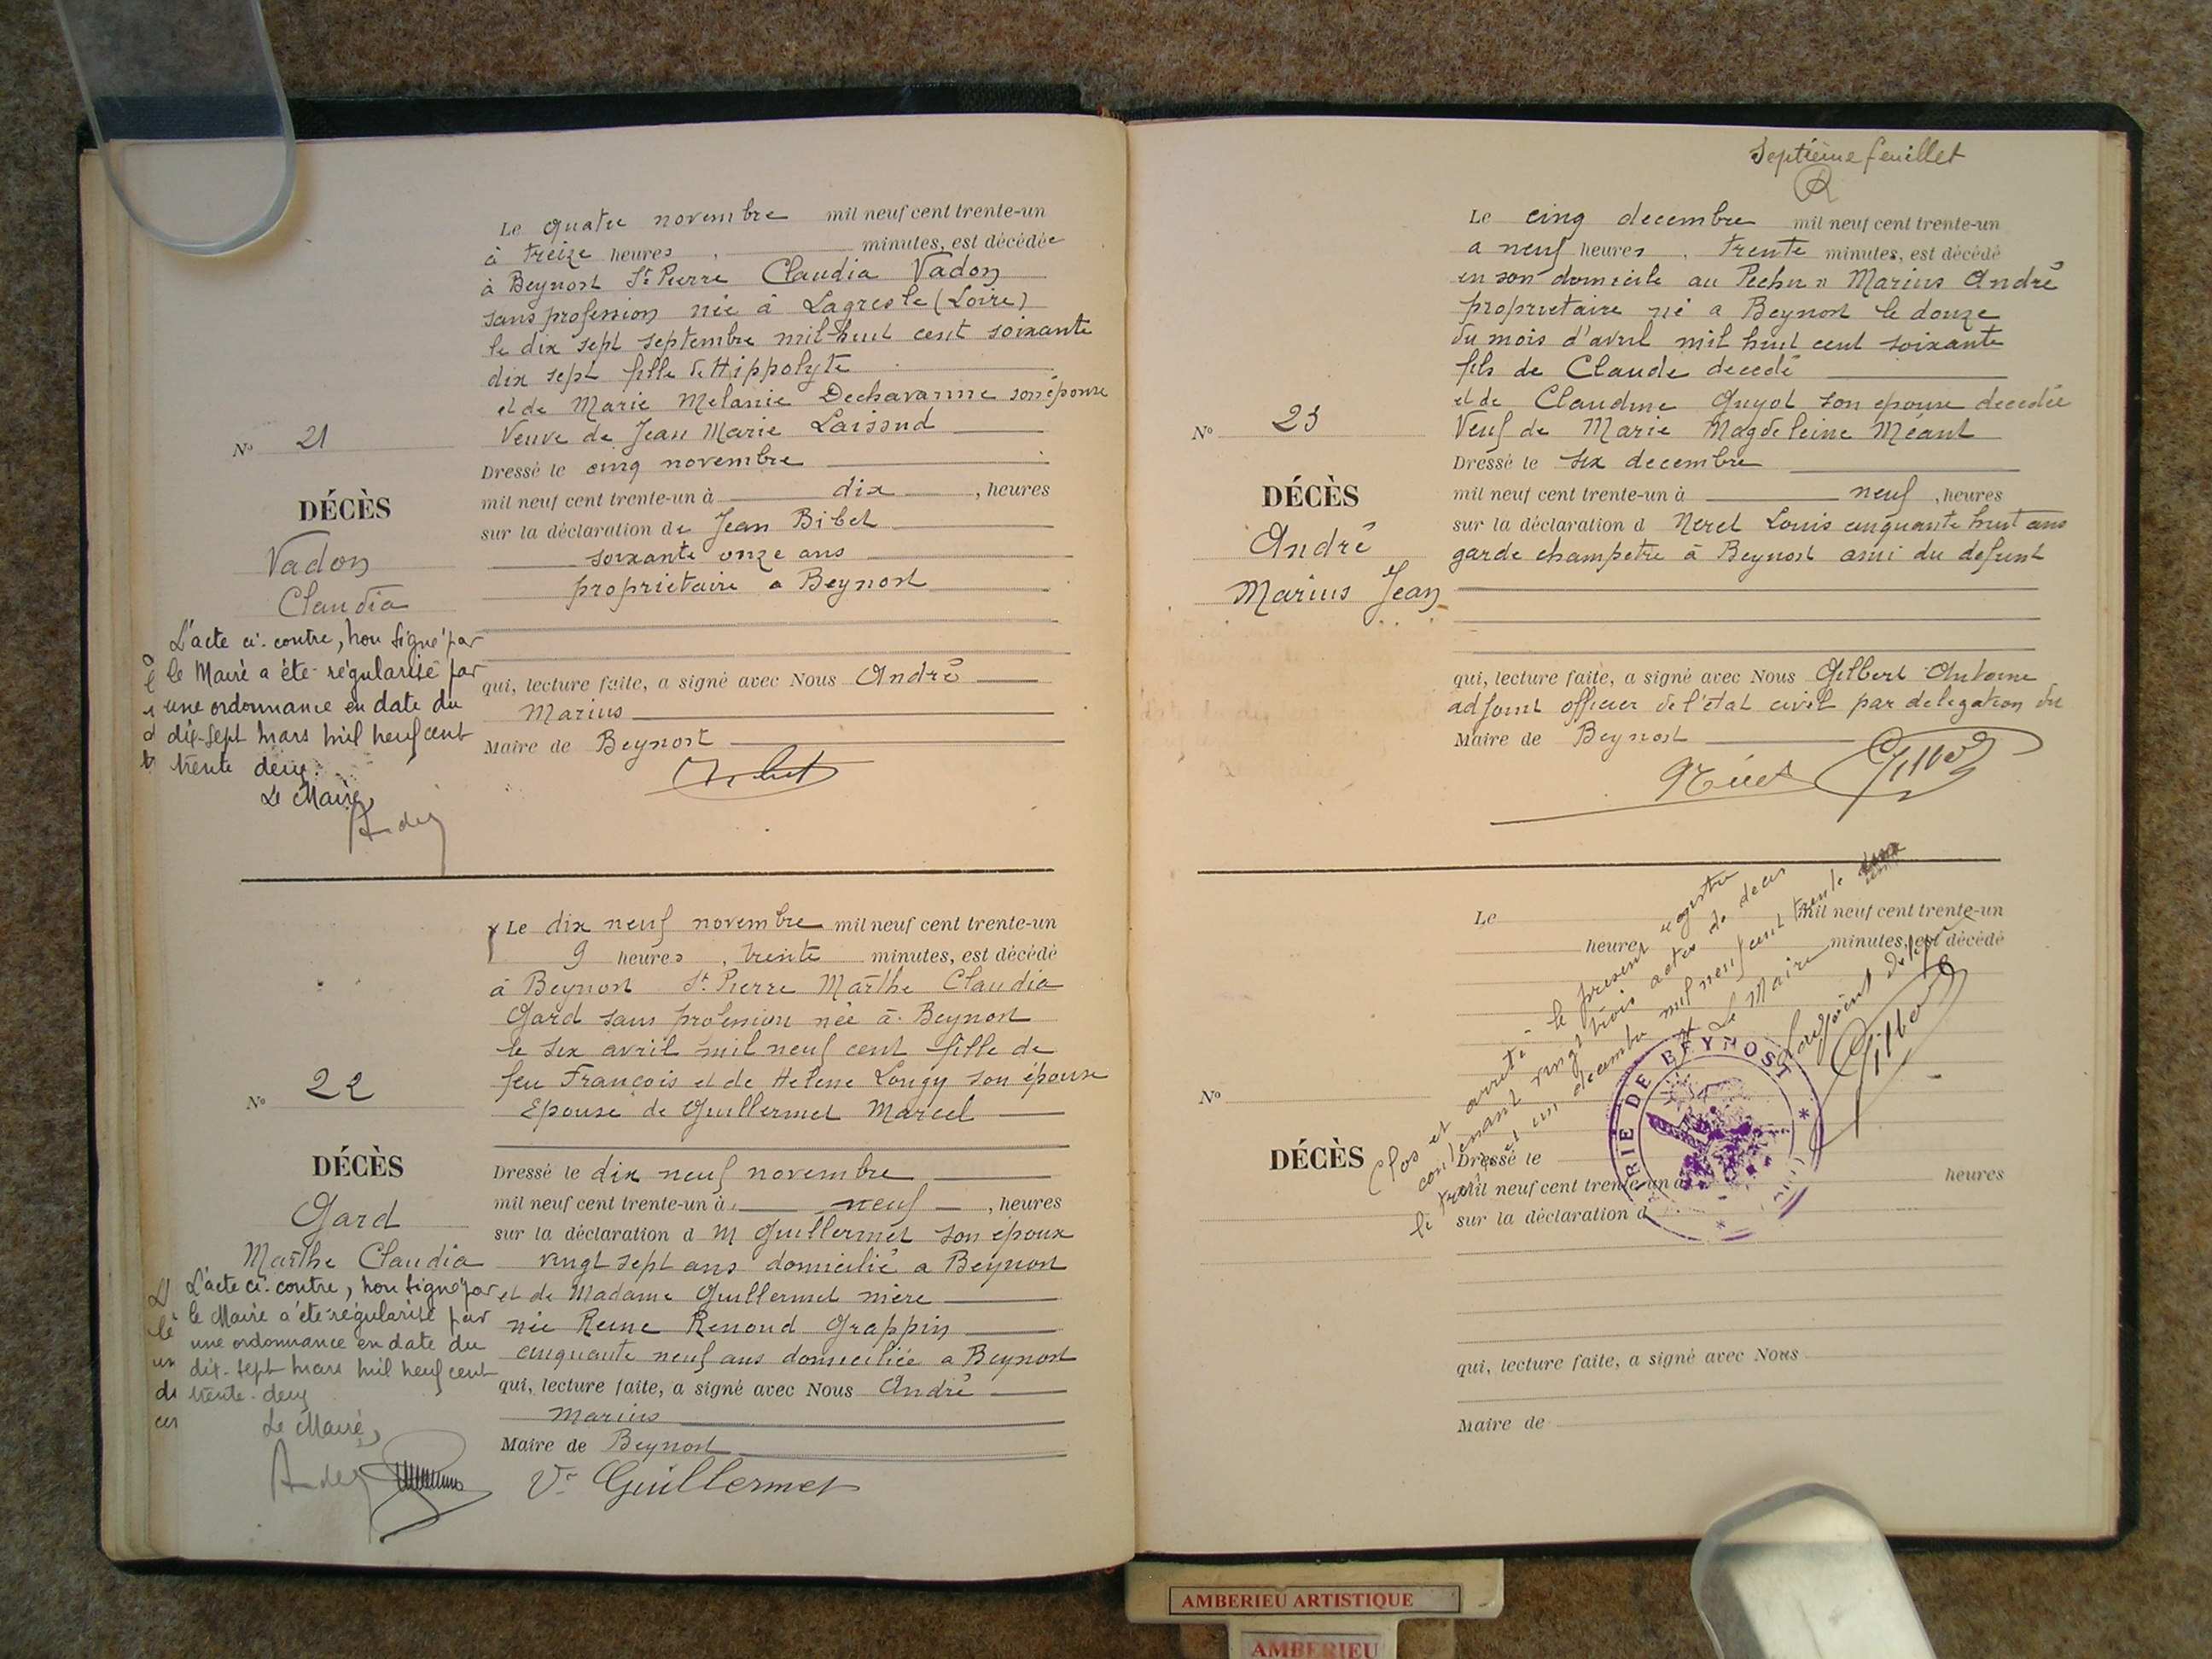 Le quatre novembre mil neuf cent trente-un
à treize heures, minutes, est décédée
à Beynost St Pierre Claudia Vadon
sans profession née à Lagresle (Loire)
le dix sept septembre mil huit cent soixante
dix sept fille de Hippolyte
et de Marie Melanie Dechavanne son épouse
Veuve de Jean Marie Laissud
Dressé le cinq novembre
mil neuf cent trente-un à dix, heures
sur la déclaration de Jean Bibet
soixante onze ans
propriétaire a Beynost
qui, lecture faite, a signé avec Nous André
Marius
Maire de Beynost
No 21
DÉCÈS
Vadon
Claudia
L'acte ci-contre, non signé par
le Maire a été régularisé par
une ordonnance en date du
dix-sept mars mil neuf cent
trente deux.
Le Maire,
Le dix neuf novembre mil neuf cent trente-un
9 heures, trente minutes, est décédé
à Beynost St Pierre Marthe Claudia
Gard sans profession née à Beynost
le six avril mil neuf cent fille de
feu François et de Helene Longy son épouse
Epouse de Guillermet Marcel
Dressé le dix neuf novembre
mil neuf cent trente-un à neuf, heures
sur la déclaration d M Guillermet son époux
vingt sept ans domicilié a Beynost
et de Madame Guillermet mère
née Reine Renoud Grappin
cinquante neuf ans domiciliée a Beynost
qui, lecture faite, a signé avec Nous André
Marius
Maire de Beynost
Ve Guillermet
No 22
DÉCÈS
Gard
Marthe Claudia
L'acte ci-contre, non signé par
le Maire a été régularisé par
une ordonnance en date du
dix-sept mars mil neuf cent
trente-deux
Le Maire,
Septième feuillet
Le cinq decembre mil neuf cent trente-un
a neuf heures, trente minutes, est décédé
en son domicile au Pechu" Marius André
proprietaire né a Beynost le douze
du mois d'avril mil huit cent soixante
fils de Claude decedé
et de Claudine Guyot son epouse decedée
Veuf de Marie Magdeleine Méant
Dressé le six decembre
mil neuf cent trente-un à neuf, heures
sur la déclaration d Neret Louis cinquante huit ans
garde champetre à Beynost ami du defunt
qui, lecture faite, a signé avec Nous Gilbert Antoine
adjoint officier de l'état civil par delegation du
Maire de Beynost
No 23
DÉCÈS
André
Marius Jean
Le mil neuf cent trente-un
heures minutes, est décédé
No
DÉCÈS
Dressé le
mil neuf cent trente-un à heures
sur la déclaration d
qui, lecture faite, a signé avec Nous
Maire de
Clos et arreté le present registre
contenant vingt trois actes de deces
le trente et un decembre mil neuf cent trente
Le Maire
MAIRIE DE BEYNOST
AMBERIEU ARTISTIQUE
AMBERIEU